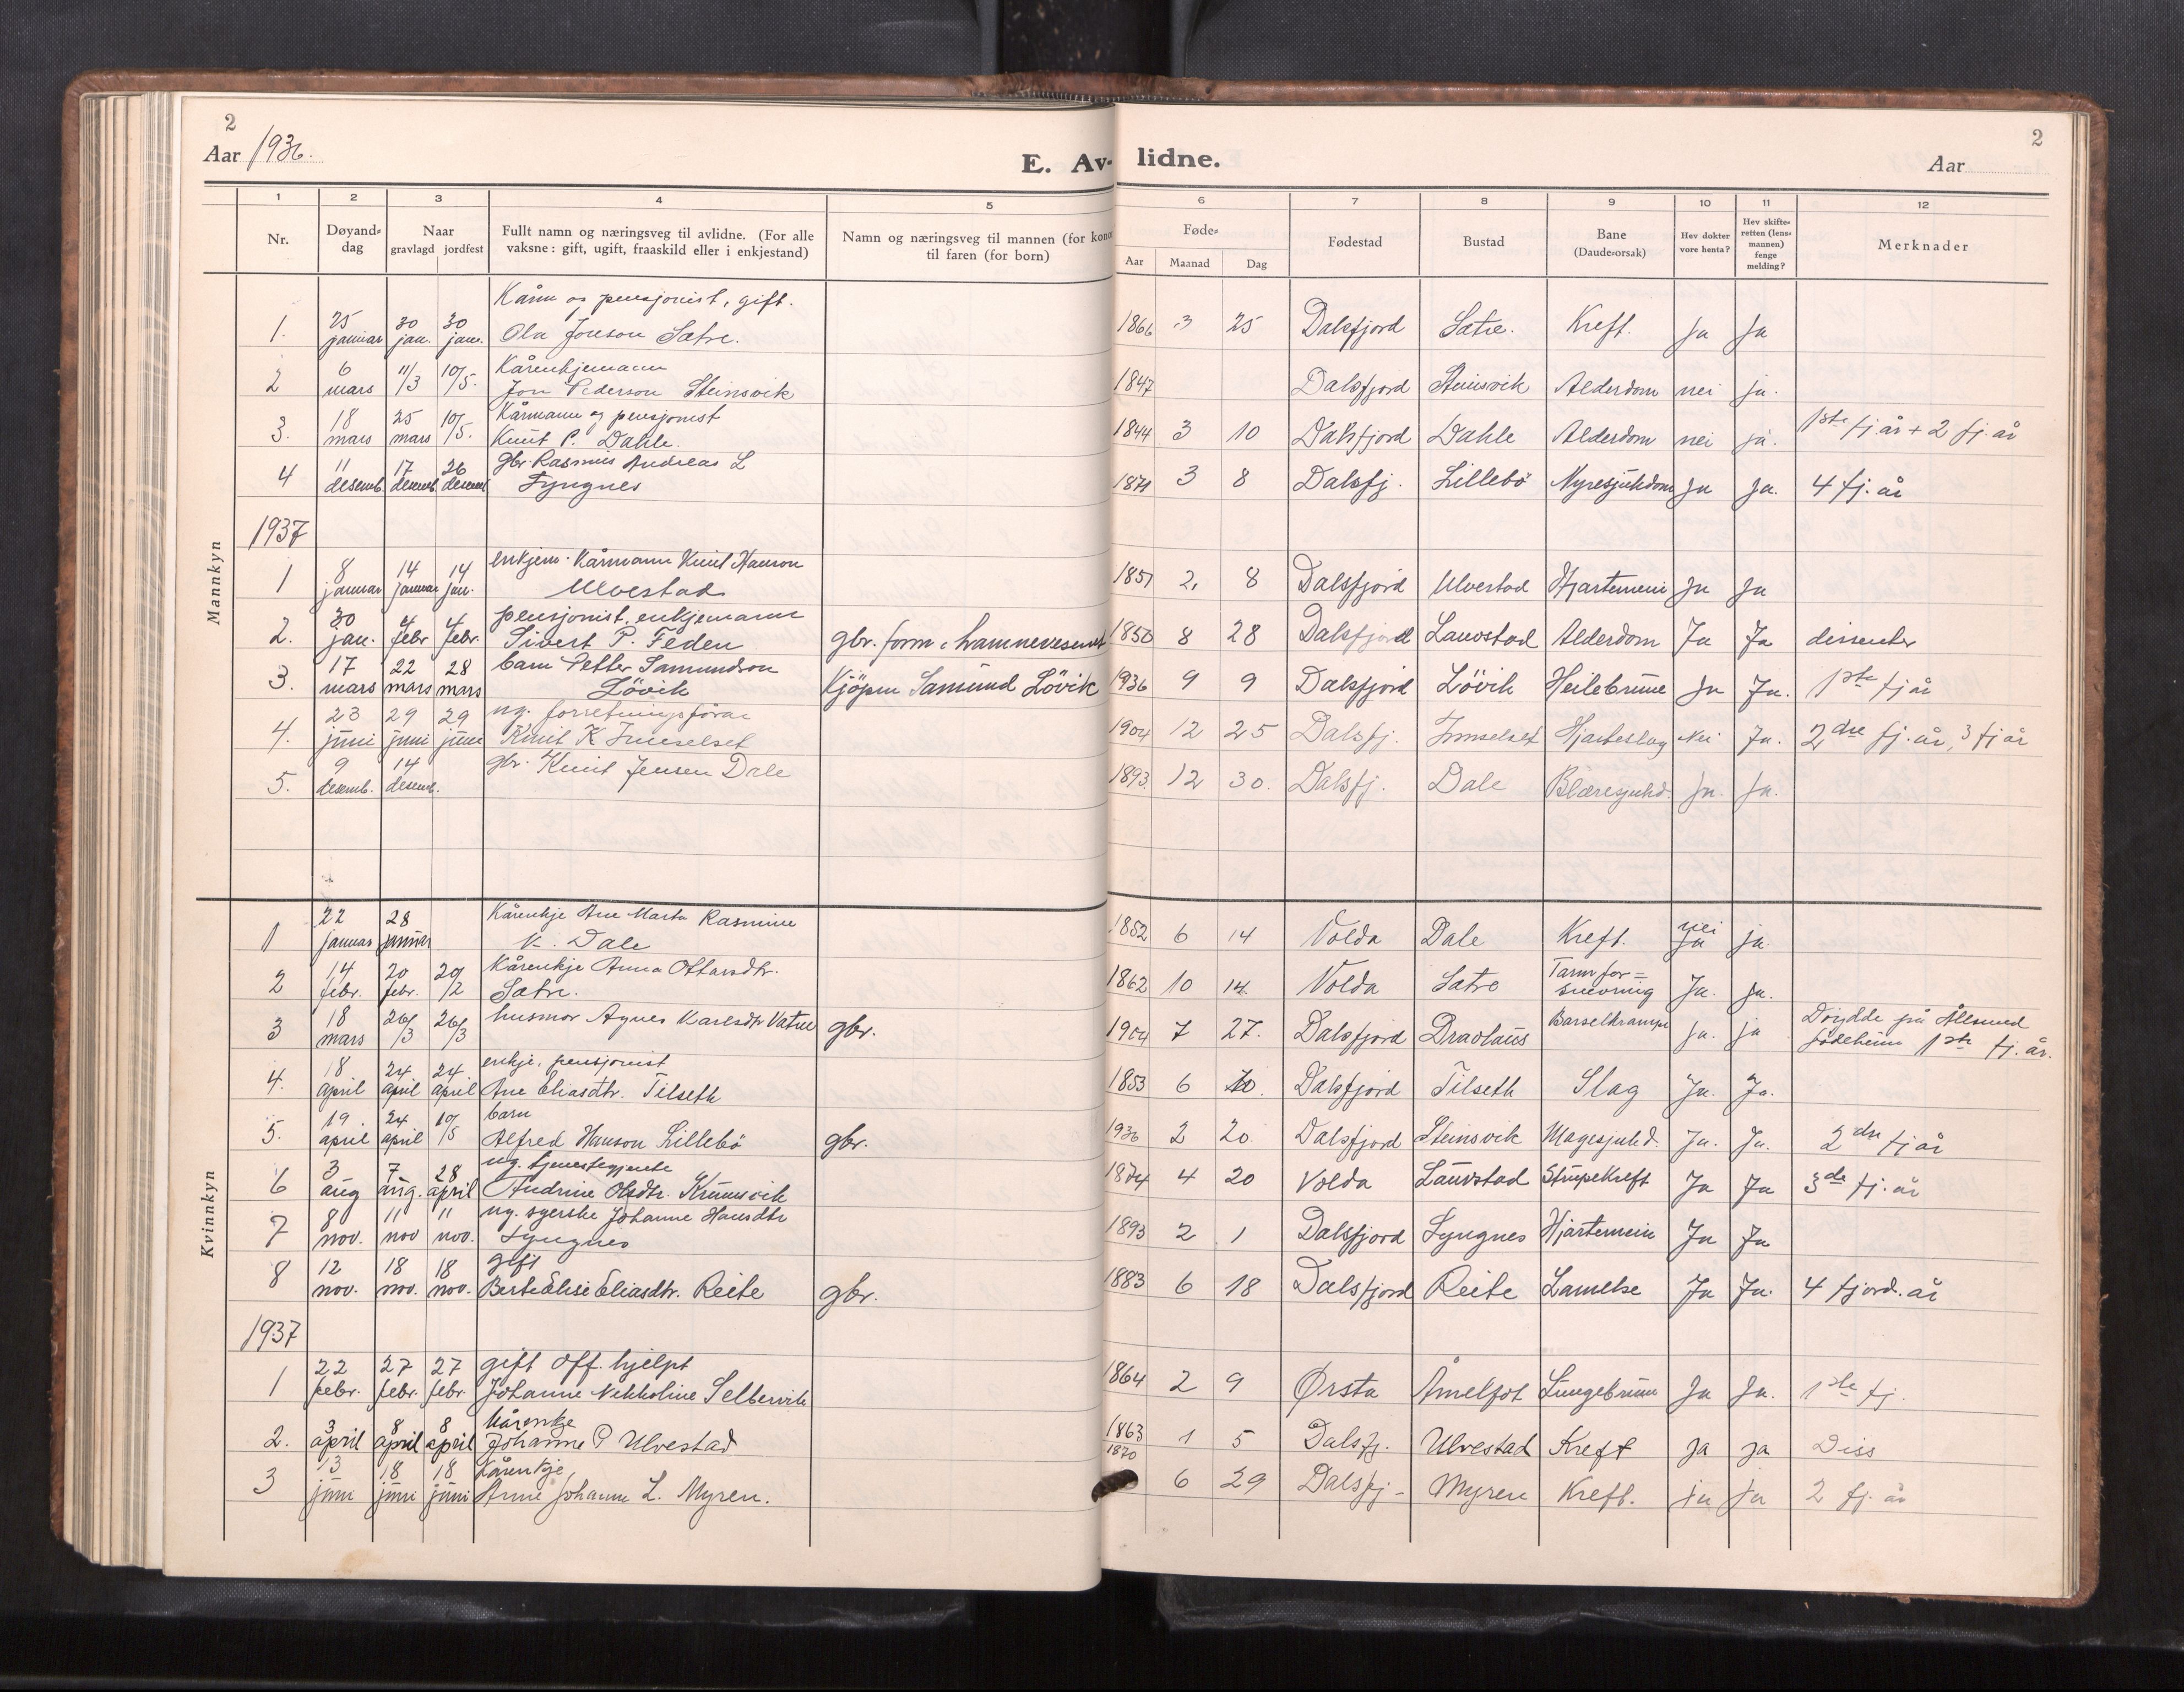 2
Aar 1936.
E. Av-
lidne.
2
Aar
1 2 3 4 5 6 7 8 9 10 11 12
Nr. Døyand-dag Naar gravlagd jordfest Fullt namn og næringsveg til avlidne. (For alle vaksne: gift, ugift, fraaskild eller i enkjestand) Namn og næringsveg til mannen (for kono til faren (for born) Føde- Aar Maanad Dag Fødestad Bustad Bane (Daudeorsak) Hev dokter vore henta? Hev skifte-retten (lens-mannen) fenge melding? Merknader
Mannkyn
1. 25 januar 30 jan. 30 jan. Kårm og pensjonist, gift. Ola Jonson Satre. 1866 3 25 Dalsfjord Satre. Kreft. Ja Ja
2 6 mars 11/3 10/5. Kårenkjemann Jon Pederson Steinsvik 1847 Dalsfjord Steinsvik Alderdom nei ja.
3. 18 mars 25 mars 10/5. Kårmann og pensjonist Knut P. Dahle. 1844 3 10 Dalsfjord Dahle Alderdom nei ja. 1ste fj. år + 2 fj. år
4 11 desemb. 17 desemb. 26 desemb gbr. Rasmus Andreas L Lyngnes 1871 3 8 Dalsfj. Lillebö Nyresjukdom Ja Ja. 4 fj. år
1937
1 8 januar 14 januar 14 jan. enkjem. Kårmann Knut Hanson Ulvestad 1851 2. 8 Dalsfjord Ulvestad Hjartemein Ja Ja
2. 30 jan. 4 febr 4 febr. pensjonist, enkjemann Sivert P. Feden gbr. form. i hamnevesenet 1850 8 28 Dalsfjord Lauvstad Alderdom Ja Ja dissenter
3. 17 mars 22 mars 28 mars barn Petter Samundson Lövik Kjöpm Samund Lövik 1936 9 9 Dalsfjord Lövik Heilebrune Ja Ja. 1ste fj år
4. 23 juni 29 juni 29 juni ug. forretningsförar Knut K Innselset 1904 12 25 Dalsfj. Innselset Hjarteslag Nei Ja. 2dre fj. år, 3 fj år
5. 9 desemb. 14 desemb. gbr. Knut Jensen Dale 1893 12 30. Dalsfj. Dale Blæresjukd. Ja. Ja.
Kvinnkyn
1 22 januar 28 januar Kårenkje Ane Marta Rasmine K. Dale 1852 6 14 Volda Dale Kreft. nei Ja ja
2 14 febr. 20 febr. 20/2 Kårenkje Anna Ottarsdtr. Satre. 1862 10 14. Volda Satre Tarmfor=snevring Ja. Ja.
3 18 mars 26/3 26/3 husmor Agnes Karlsdtr Vatne gbr. 1904 7 27. Dalsfjord Dravlaus Barselkrampe ja. ja Döydde på Ålesund fødeheim 1ste fj. år.
4. 18 april 24 april 24 april enkje, pensjonist Ane Eliasdtr. Tilseth 1853 6 10. Dalsfjord Tilseth Slag Ja. Ja.
5. 19 april 24 april 10/5 barn Alfred Hanson Lillebö gbr. 1936 2 20 Dalsfjord Steinsvik Magesjukd. Ja. Ja. 2dre fj år
6 3 aug 7 aug. 28 april ug. tjenestegjente Andrine Olsdtr. Krumsvik 1874 4 20 Volda Lauvstad Strupekreft Ja Ja 3de fj. år
7 8 nov. 11 nov 11 nov. ug. syerske Johanne Hansdtr Lyngnes 1893 2 1 Dalsfjord Lyngnes Hjartemein Ja Ja
8 12 nov. 18 nov. 18 nov. gift Berte Elise Eliasdtr. Reite gbr. 1883 6 18 Dalsfjord Reite Lamelse Ja Ja. 4 fjord. år
1937
1 22 febr. 27 febr. 27 febr. gift off. hjelpt Johanne Nikkoline Selbervik 1864 2 9 Ørsta Åmelfot Lungebrune Ja Ja. 1ste fj.
2. 3 april 8 april 8 april Kårenkje Johanne P Ulvestad 1863 1 5 Dalsfj. Ulvestad Kreft ja ja Diss
3 13 juni 18 juni 18 juni Kårenkje, Anne Johanne L. Myren. 1870 6 29 Dalsfj- Myren Kreft. ja ja 2 fj. år